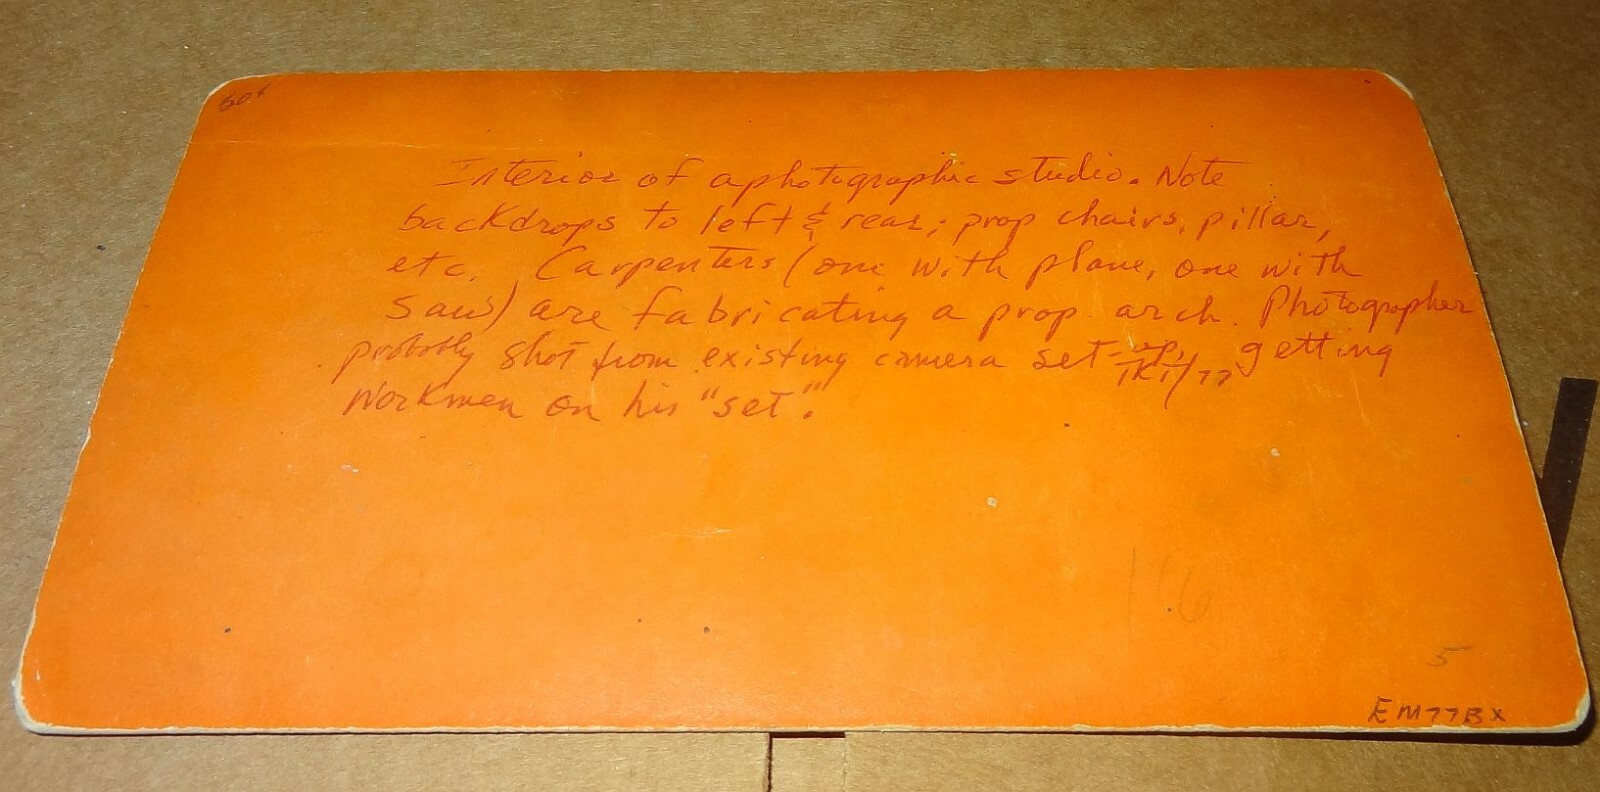 60¢
Interior of a photographic studio. Note
backdrops to left & rear; prop chairs, pillar,
etc. Carpenters (one with plane, one with
saw) are fabricating a prop arch. Photographer
probably shot from existing camera set-up, getting
workmen on his "set".
1'6
5
EM77BX